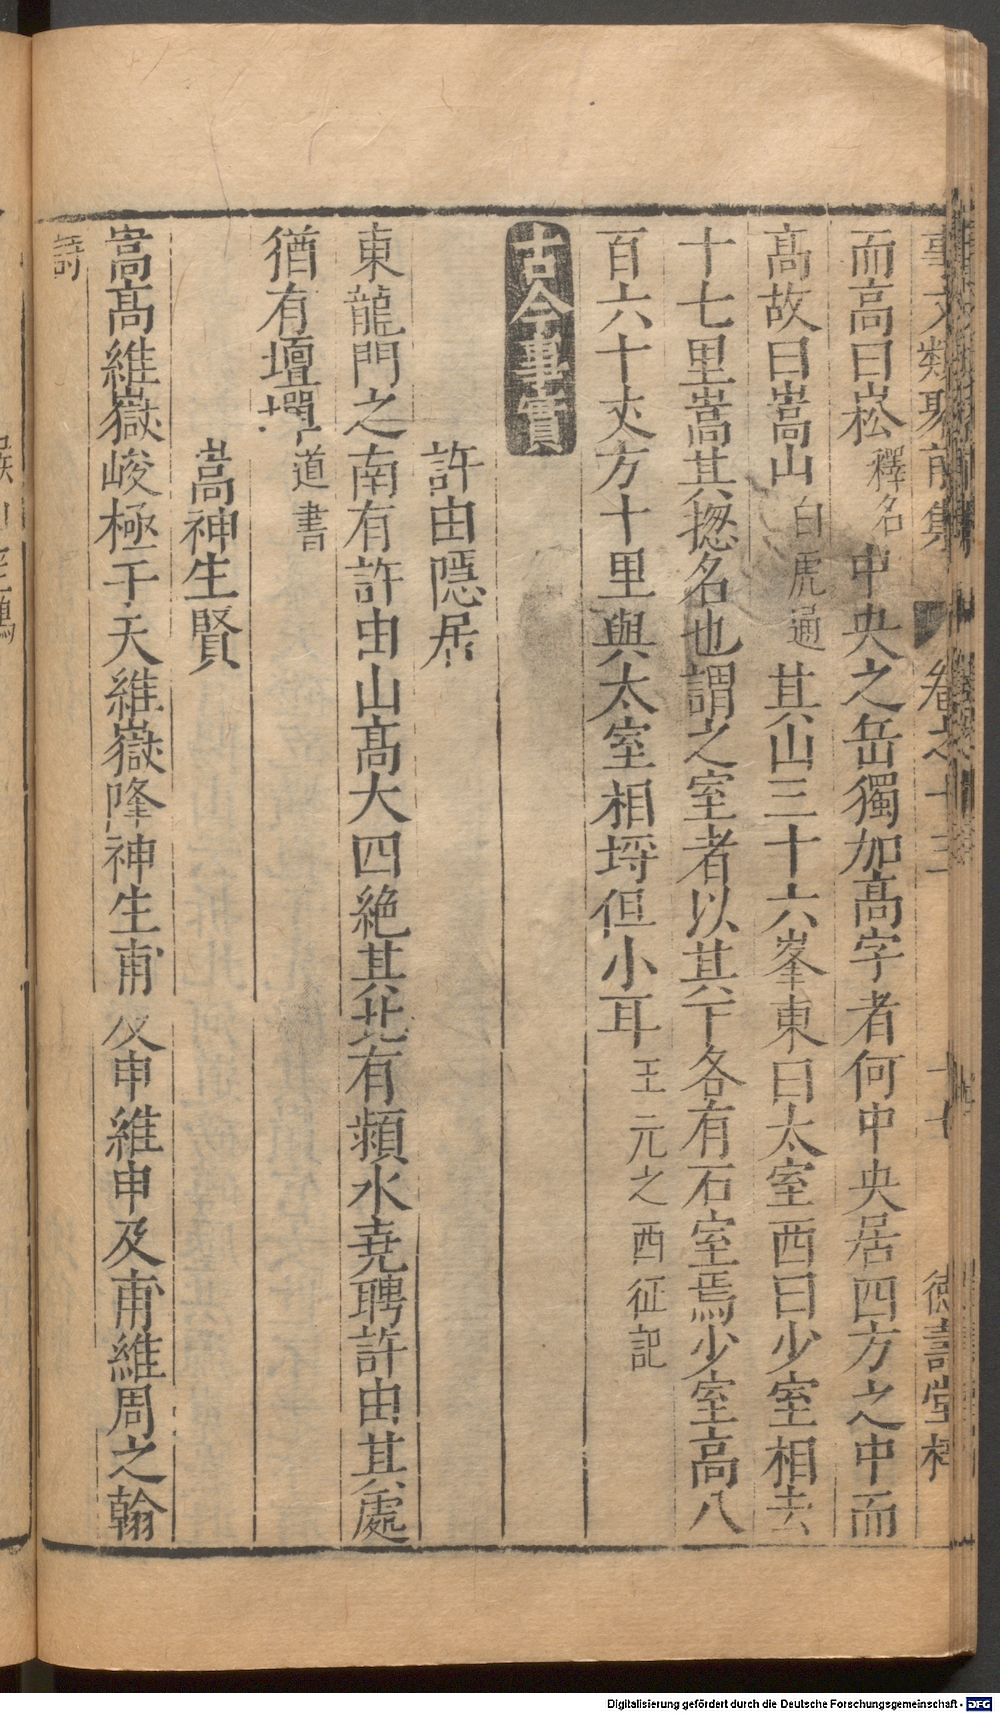 事文類聚前集 卷之十三 十七 德壽堂梓
而高曰崧釋名中央之岳獨加高字者何中央居四方之中而
高故曰嵩山白虎通其山三十六峯東曰太室西曰少室相去
十七里嵩其揔名也謂之室者以其下各有石室焉少室高八
百六十丈方十里與太室相埒但小耳王元之西征記
古今事實
許由隱居
東龍門之南有許由山高大四絶其北有頻水堯聘許由其處
猶有壇墠道書
嵩神生賢
嵩高維嶽峻極于天維嶽降神生甫及申維申及甫維周之翰
詩
Digitalisierung gefördert durch die Deutsche Forschungsgemeinschaft - DFG